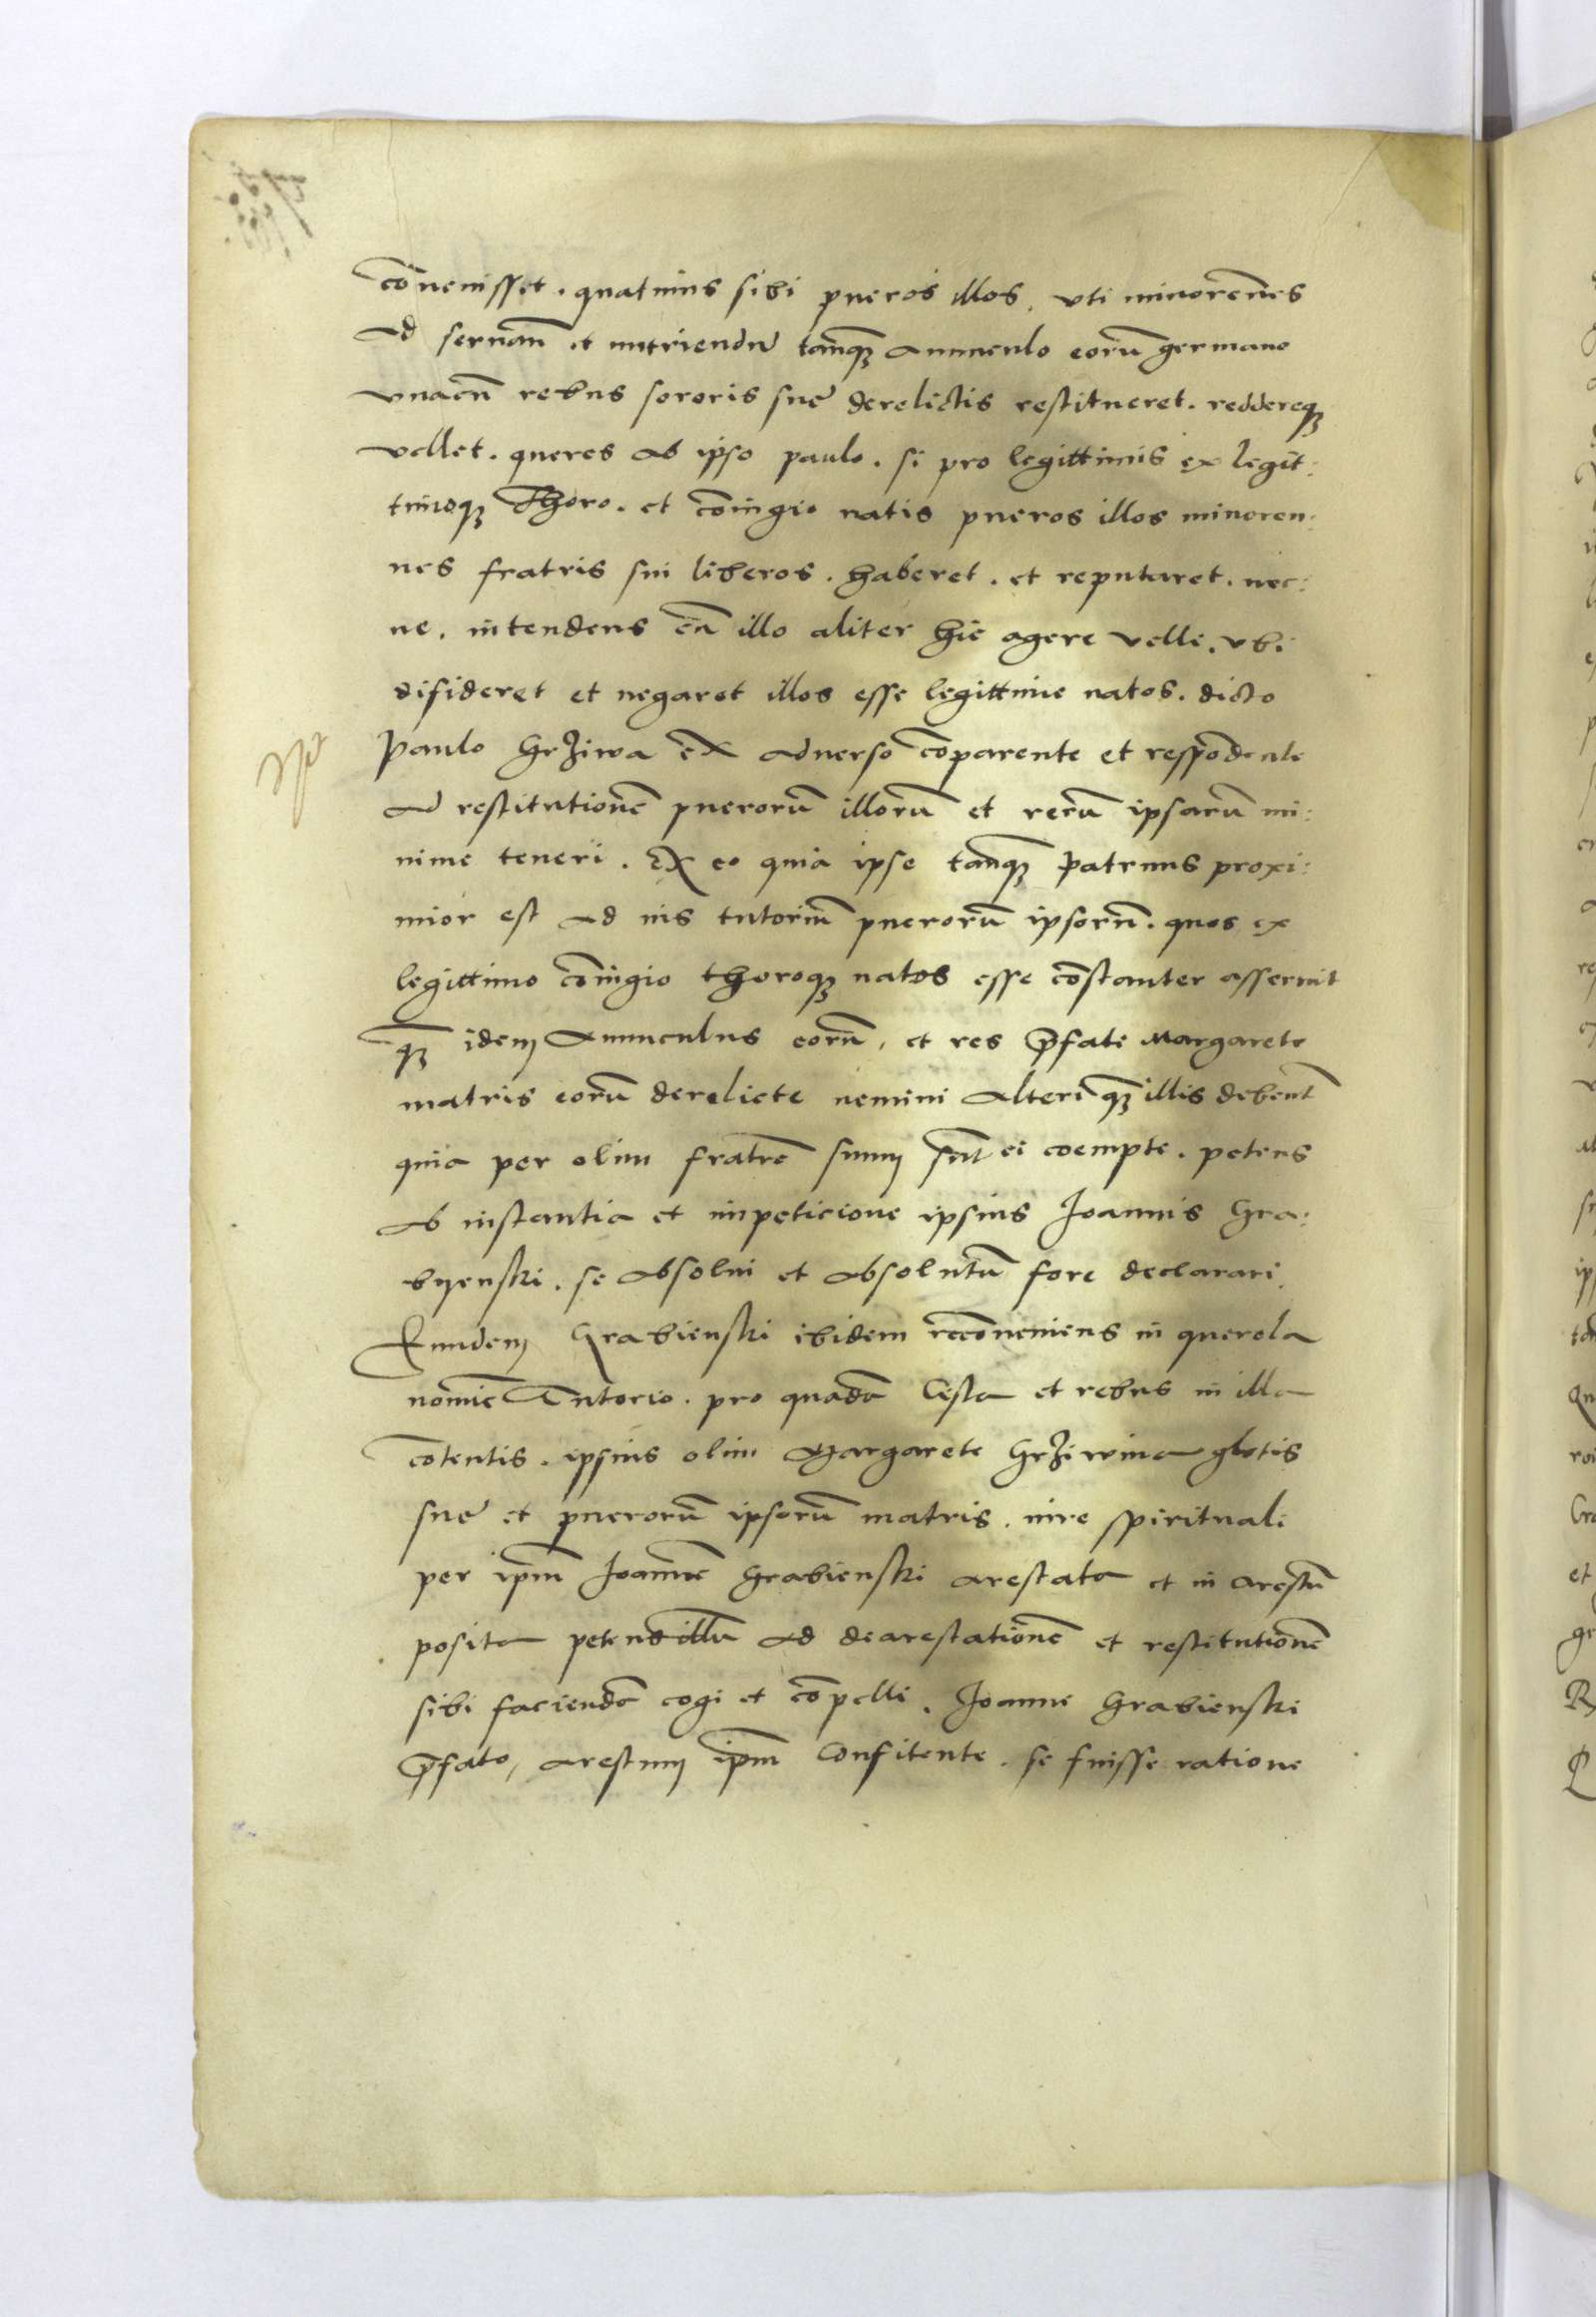 cōuenisset . quatinus sibi pueros illos . vti minorēnes
ad seruan̄ et nutriendū tanq̄ȝ Auunculo eorū germano
vnacū rebus sororis sue derelictis restitueret . reddereqȝ
vellet . queres ab ipso paulo . si pro legittimis ex legit:
timoqȝ Thoro . et cōiugio natis pueros illos minoren:
nes fratris sui liberos . haberet . et reputaret . nec:
ne . intendens cū illo aliter hic agere velle . vbi
disideret et negaret illos esse legittime natos . dicto
Paulo Grziwa ex aduerso cōparente et respōdente
ad restitutionē puerorū illorū et rerū ipsarū mi:
nime teneri . Ex eo quia ipse tanq̄ȝ Patruus proxi:
mior est ad ius tutoriū puerorū ipsorū . quos ex
legittimo cōiugio thoroqȝ natos esse cōstanter asseruit
q̄ȝ idem Auunculus eorū , et res p̄fate Margarete
matris eorū derelicte nemini alteri q̄ȝ illis debent̄
quia per olim fratrē suum sūt ei coempte . petens
ab instantia et impeticione ipsius Joannis Gra:
byenski . se absolui et absolutū fore declarari .
Eundem Grabienski ibidem recōueniens in querela
nomīe Tutorio . pro quadā Cista et rebus in illa
cōtentis . ipsius olim Margarete Grziwina glotis
sue et puerorū ipsorū matris . iure spirituali
per ipm̄ Joannē Grabienski arestata et in arestū
posita petens illū ad dearestationē et restitutionē
sibi faciendā cogi et cōpelli . Joanne Grabienski
p̄fato , arestum ipm̄ Confitente . se fuisse ratione